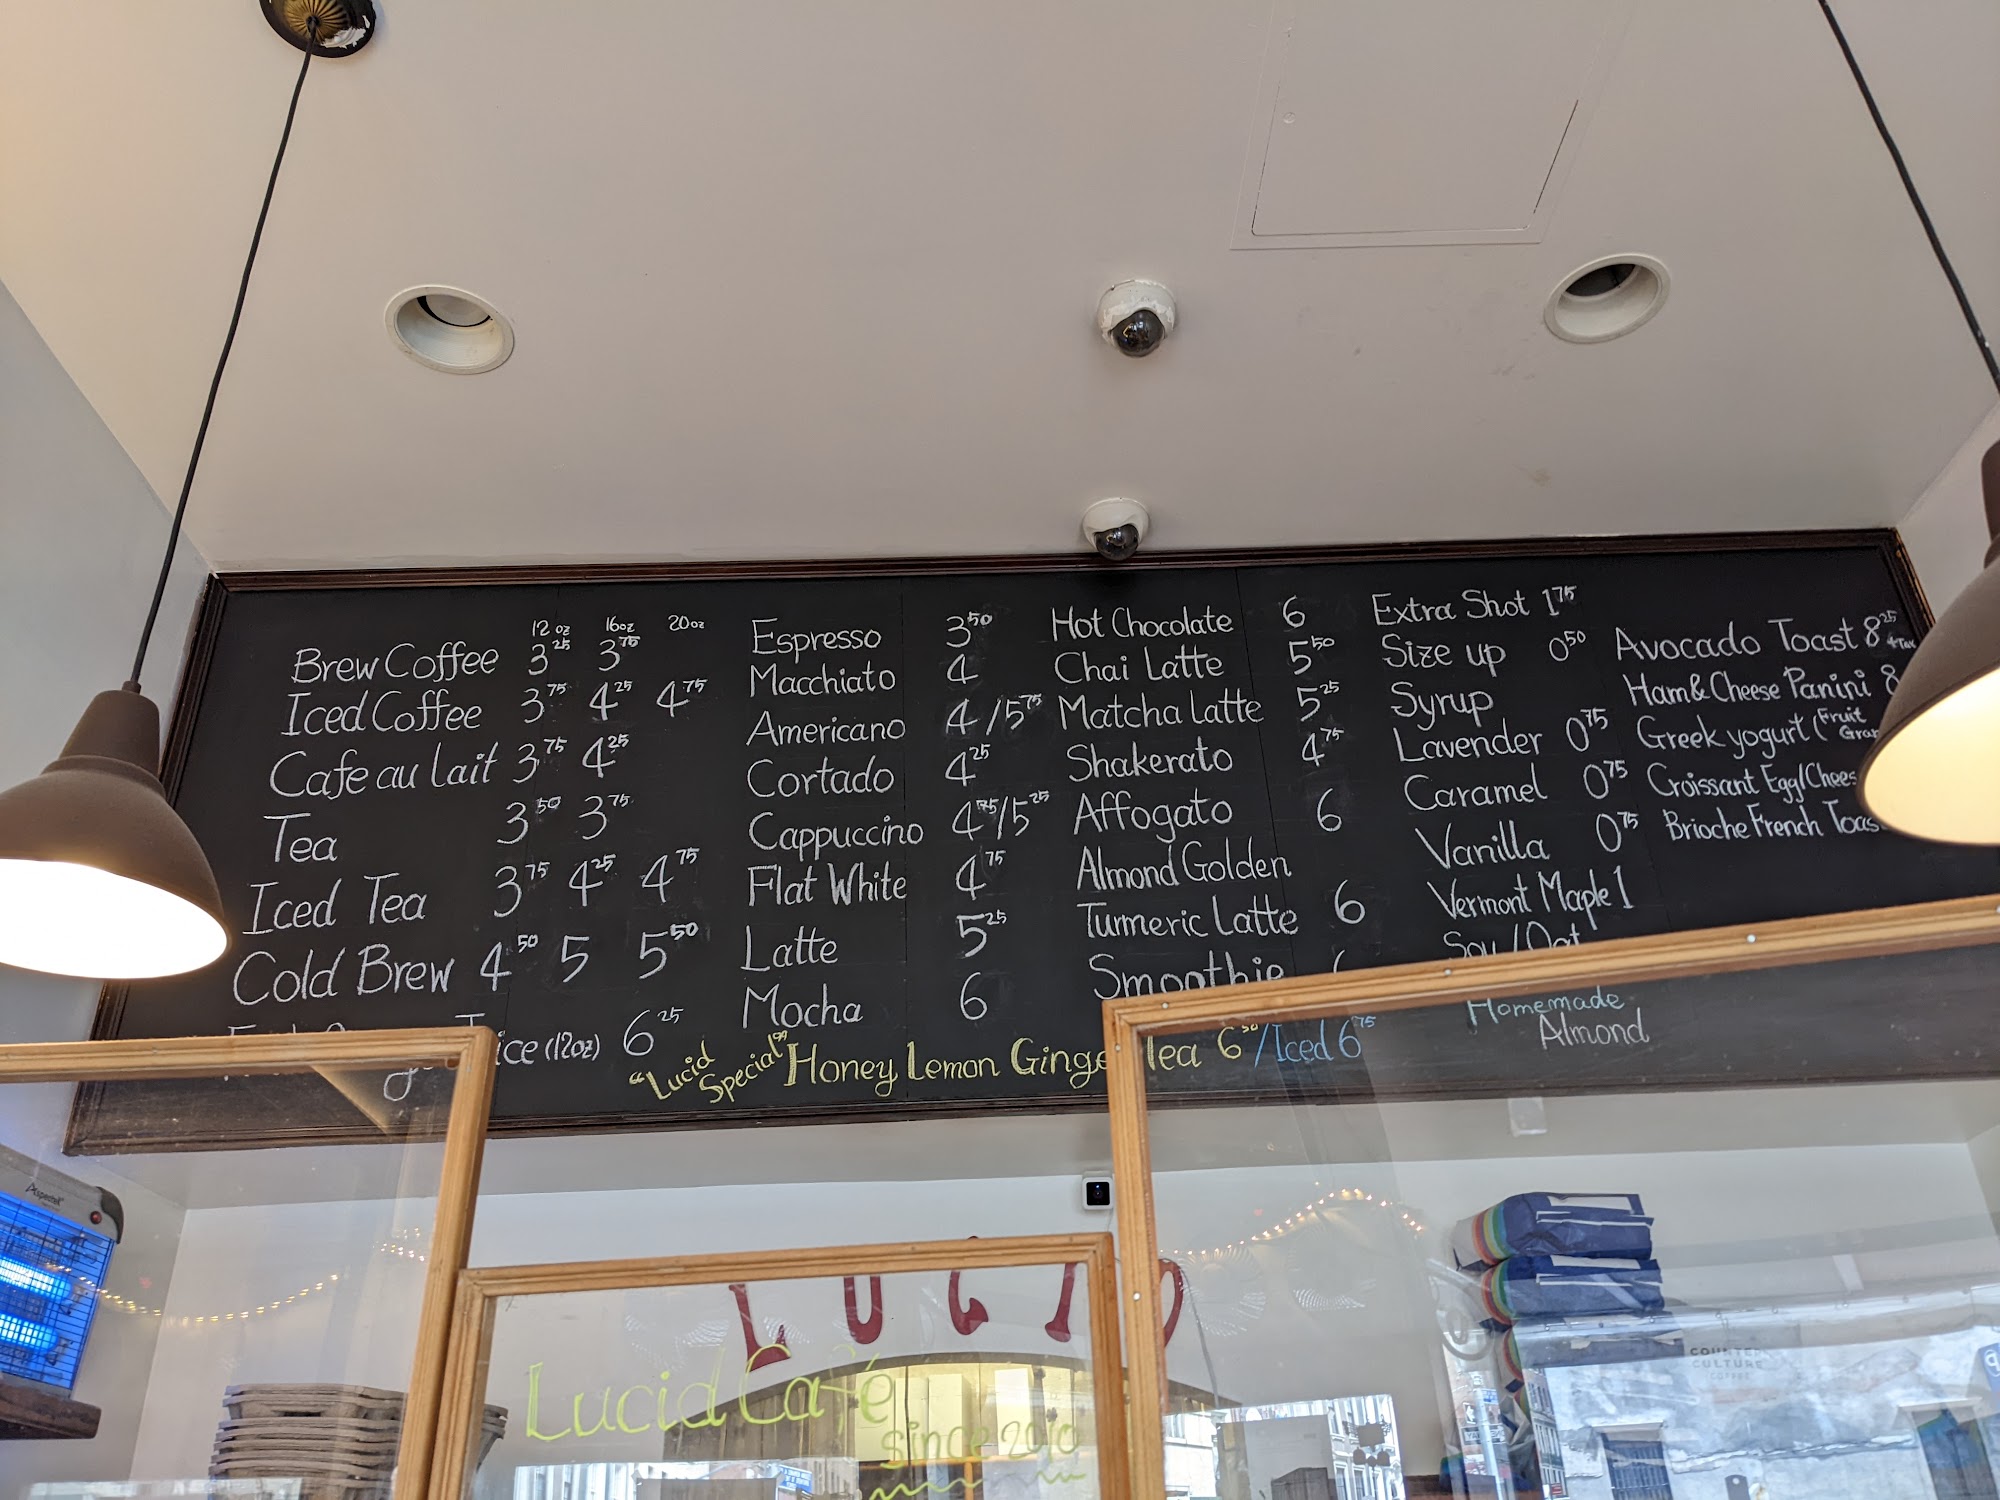 12 oz 16oz 20oz
Brew Coffee 3 25 3 75
Iced Coffee 3 75 4 25 4 75
Cafe au lait 3 75 4 25
Tea 3 50 3 75
Iced Tea 3 75 4 25 4 75
Cold Brew 4 50 5 5 50
ice (12oz) 6 25
Espresso 3 50
Macchiato 4
Americano 4 /5 75
Cortado 4 25
Cappuccino 4 75/5 25
Flat White 4 75
Latte 5 25
Mocha 6
Hot Chocolate 6
Chai Latte 5 50
Matcha Latte 5 25
Shakerato 4 75
Affogato 6
Almond Golden
Turmeric Latte 6
Smoothie
Extra Shot 1 75
Size up 0 50
Syrup
Lavender 0 75
Caramel 0 75
Vanilla 0 75
Vermont Maple 1
Soy / Oat
Homemade
Almond
Avocado Toast 8 25
Ham & Cheese Panini 8
Greek yogurt (Fruit
Gran
Croissant Egg/Chees
Brioche French Toas
"Lucid Special" Honey Lemon Ginge Tea 6 50 /Iced 6 75
Aspectek
LUCID
Lucid Café
since 2010
COUNTER
CULTURE
COFFEE